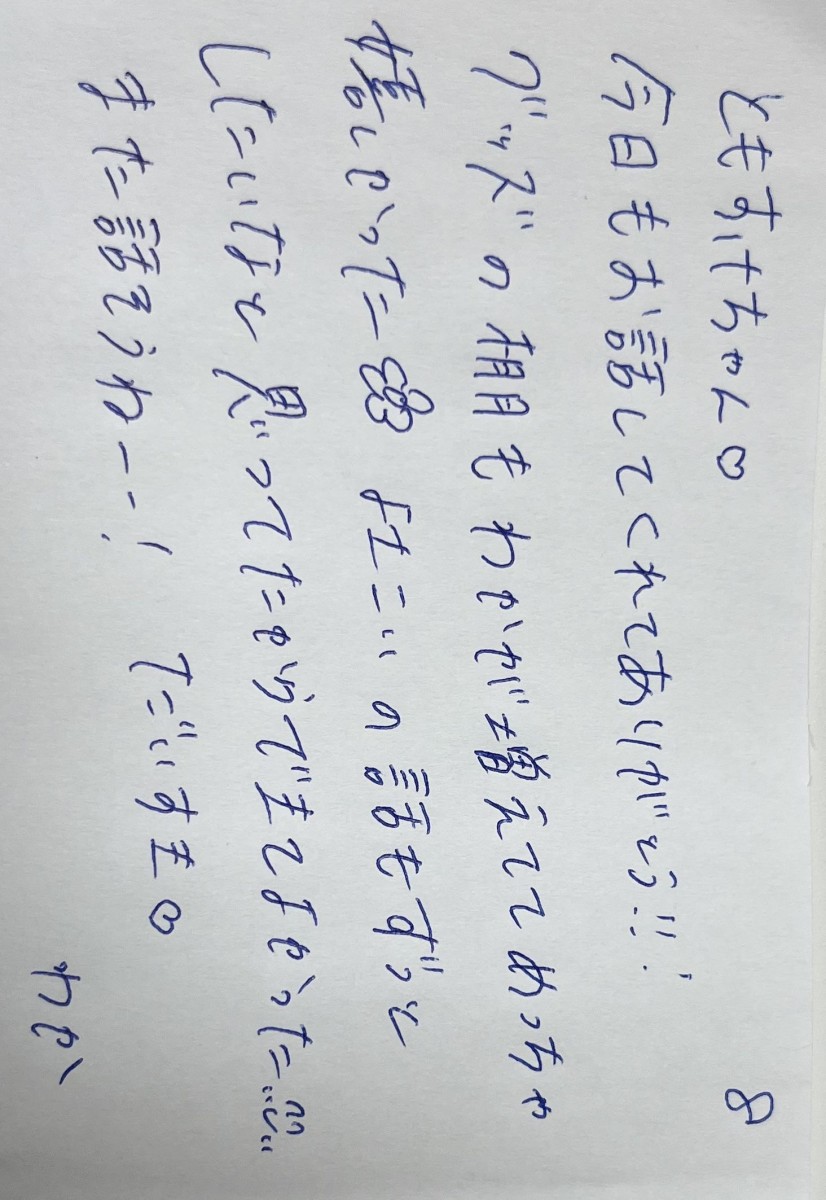 ともすけちゃん♡ 8
今日もお話してくれてありがとう!!!
グッズの棚もわかが増えててめっちゃ
嬉しかった よさこいの話もずっと
したいなと思ってたからできてよかった
また話そうねー! だいすき♡
わか